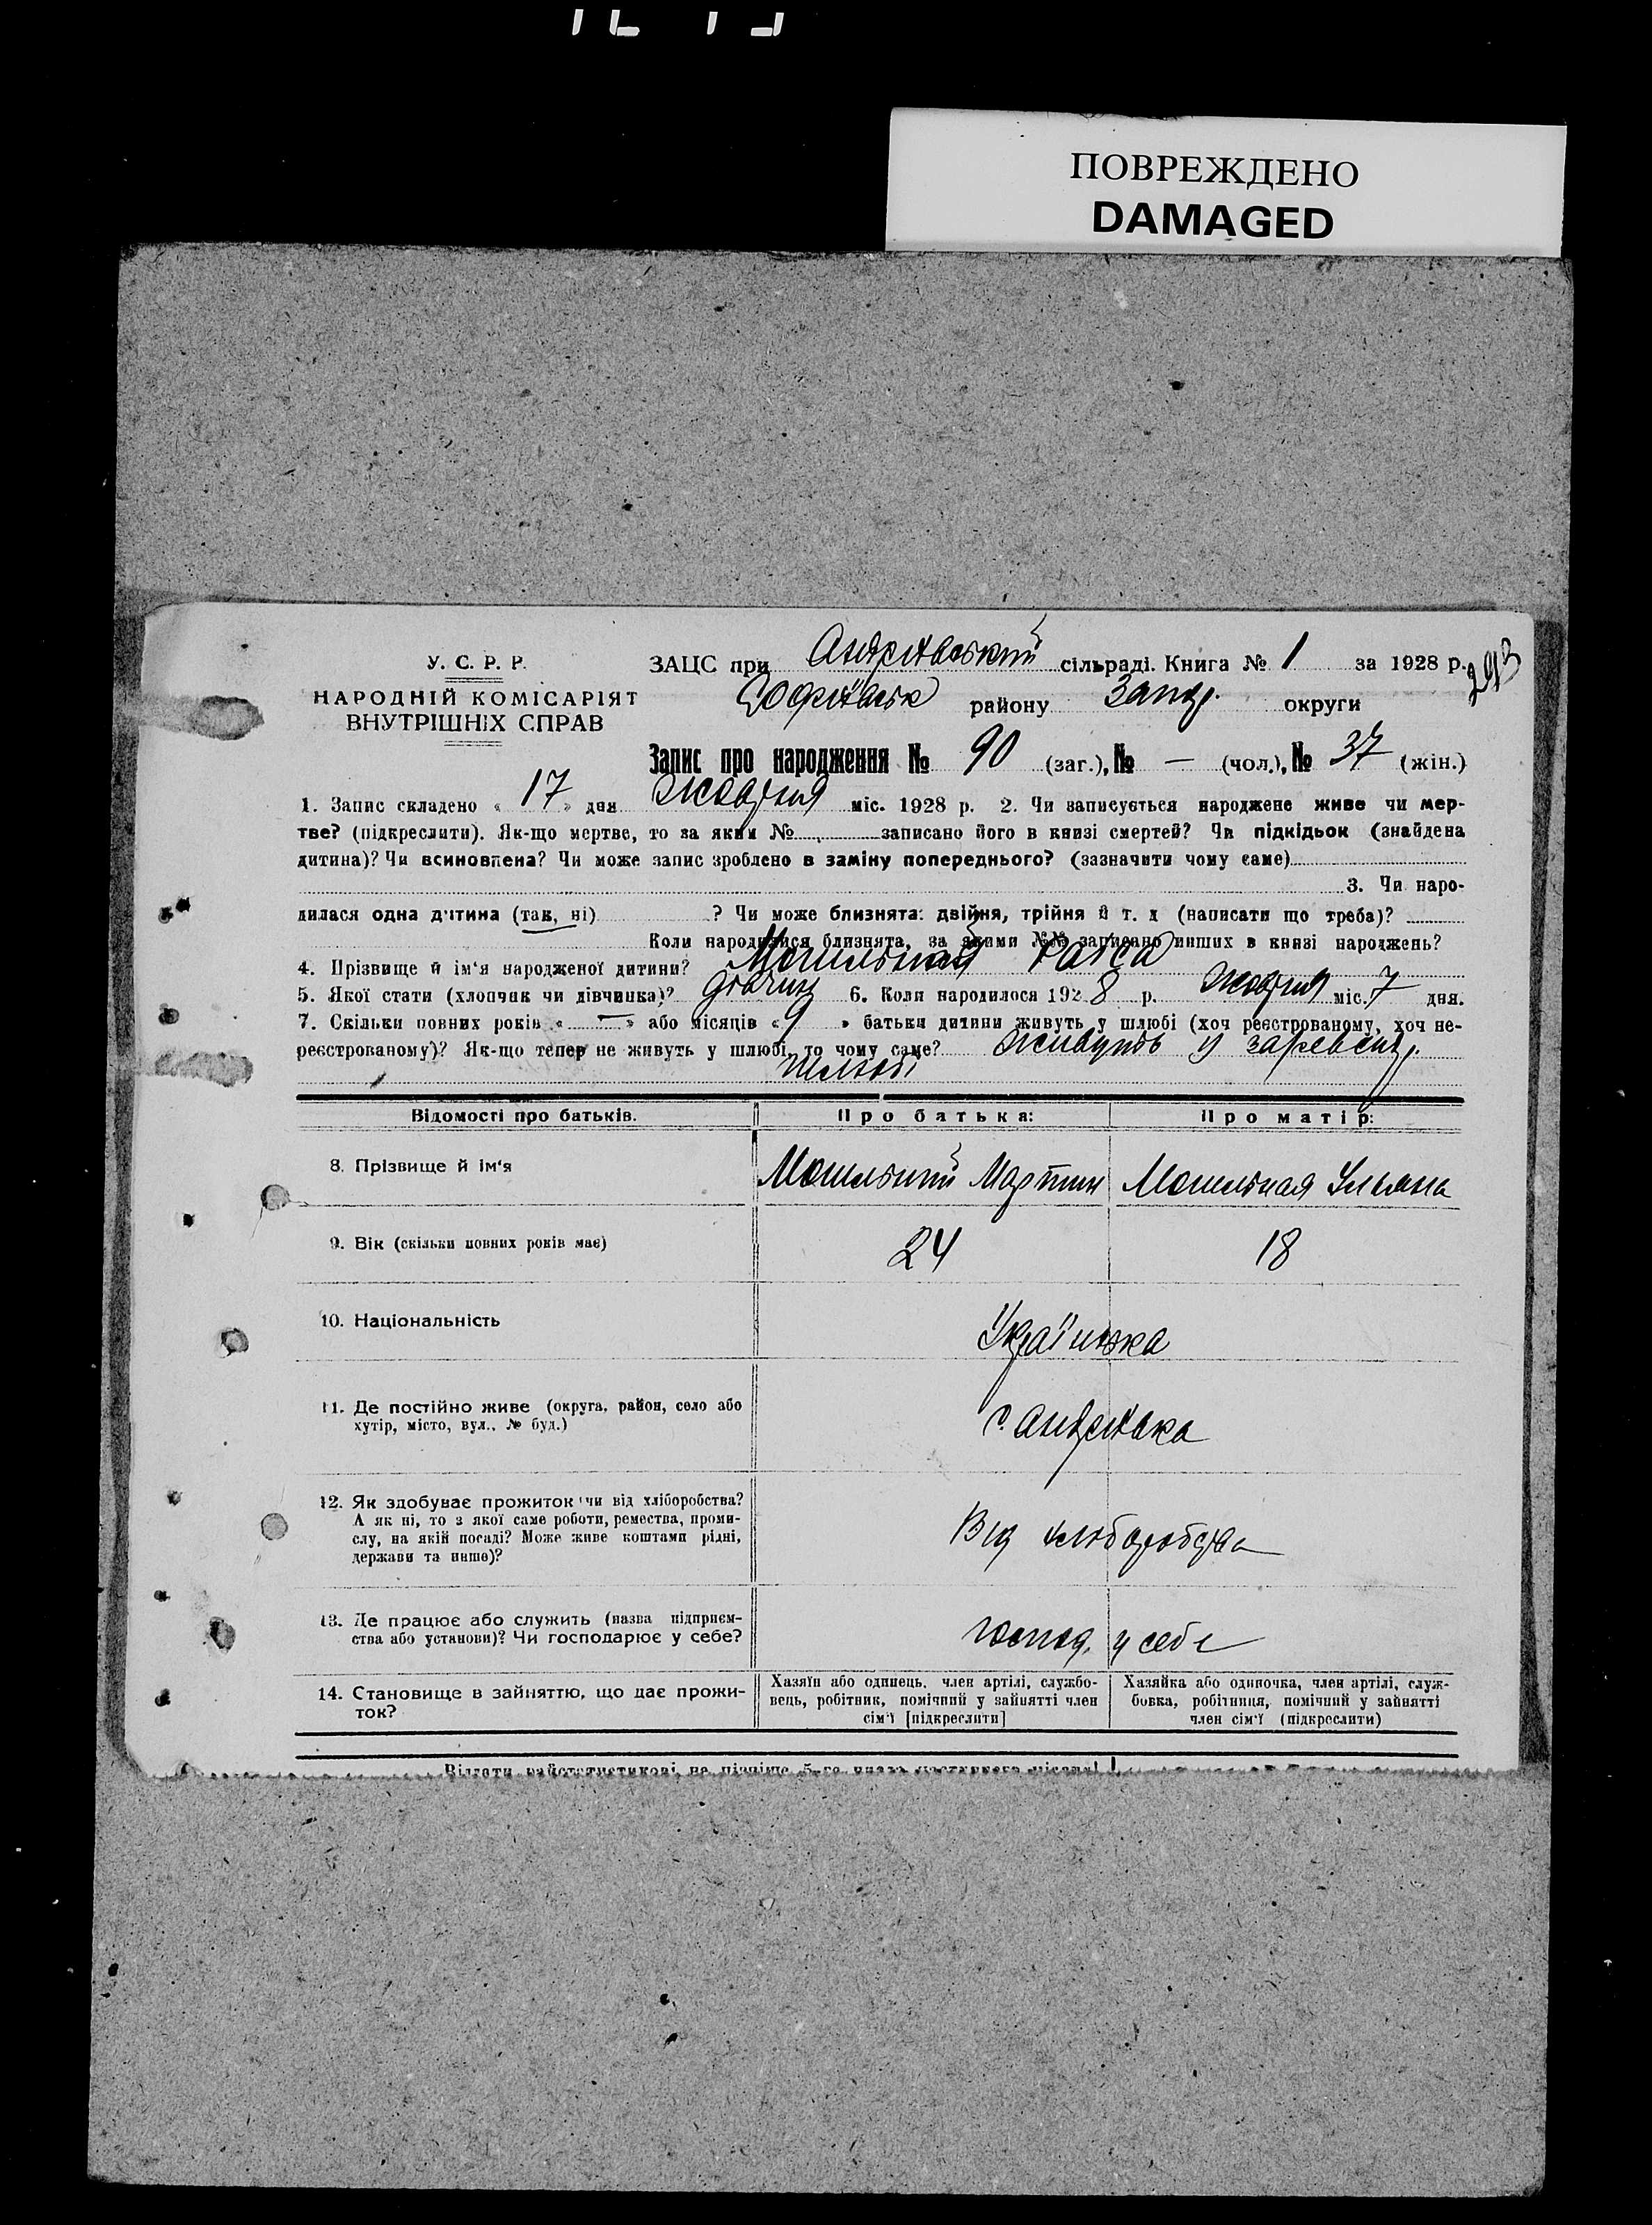 ПОВРЕЖДЕНО
DAMAGED
293
У. С. Р. Р.
НАРОДНІЙ КОМІСАРІЯТ
ВНУТРІШНІХ СПРАВ
ЗАЦС при Андріївський сільраді. Книга № 1 за 1928 р.
Софіївськ району Запор. округи
Запис про народження № 90 (заг.), № — (чол.), № 37 (жін.)
1. Запис складено « 17 » дня Жовтня міс. 1928 р. 2. Чи записується народжене живе чи мер-
тве? (підкреслити). Як-що мертве, то за яким № записано його в книзі смертей? Чи підкідьок (знайдена
дитина)? Чи всиновлена? Чи може запис зроблено в заміну попереднього? (зазначити чому саме)
3. Чи наро-
дилася одна дитина (так, ні) ? Чи може близнята: двійня, трійня й т. д (написати що треба)?
Коли народилися близнята, за якими №№ записано инших в книзі народжень?
4. Прізвище й ім'я народженої дитини? Мошльная Раїса
5. Якої стати (хлопчик чи дівчинка)? дівчин 6. Коли народилося 1928 р. Жовтня міс. 7 дня.
7. Скільки повних років « — » або місяців « 9 » батьки дитини живуть у шлюбі (хоч реєстрованому, хоч не-
реєстрованому)? Як-що тепер не живуть у шлюбі, то чому саме? Живуть у
шлюбі
Відомості про батьків. Про батька: Про матір:
8. Прізвище й ім'я Мошльний Мартин Мошльная Ульяна
9. Вік (скільки повних років має) 24 18
10. Національність Українська
11. Де постійно живе (округа, район, село або
хутір, місто, вул., № буд.) с. Андріївка
12. Як здобуває прожиток чи від хліборобства?
А як ні, то з якої саме роботи, ремества, проми-
слу, на якій посаді? Може живе коштами рідні,
держави та инше)? Від хліборобства
13. Де працює або служить (назва підприєм-
ства або установи)? Чи господарює у себе? Господ. у себе
14. Становище в зайняттю, що дає прожи-
ток?
Хазяїн або одинець, член артілі, службо-
вець, робітник, помічний у зайнятті член
сім'ї [підкреслити]
Хазяйка або одиночка, член артілі, служ-
бовка, робітниця, помічний у зайнятті
член сім'ї (підкреслити)